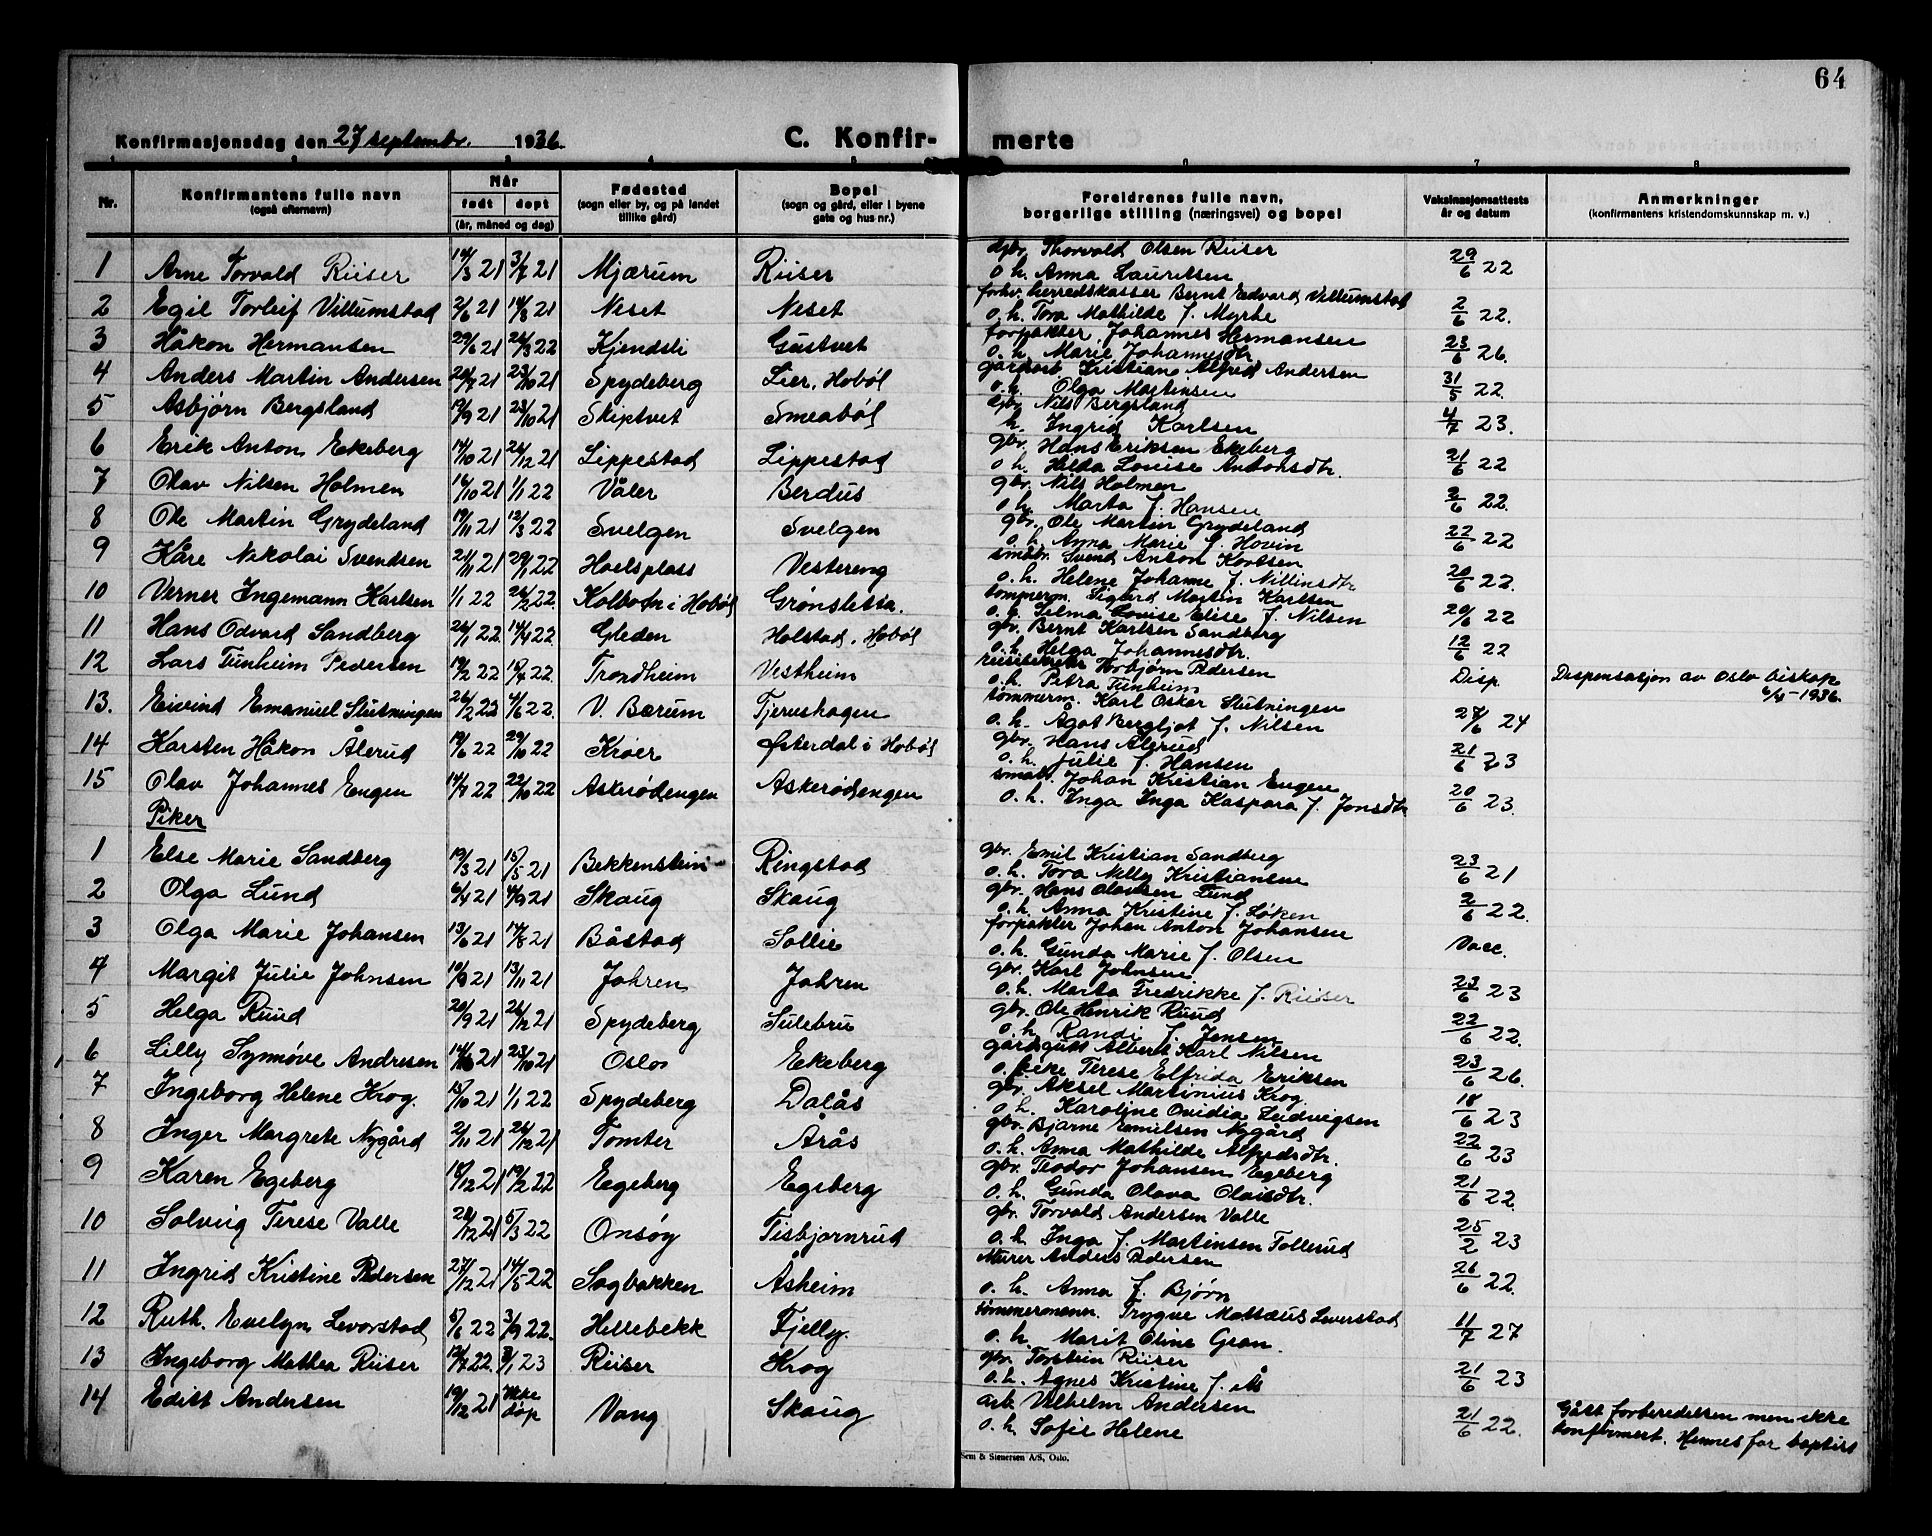 64
Konfirmasjonsdag den 27 septembr. 1936. C. Konfir- merte
6 7 8
Nr. Konfirmantens fulle navn (også efternavn) Når født døpt (år, måned og dag) Fødested (sogn eller by, og på landet tillike gård) Bopel (sogn og gård, eller i byene gate og hus nr.) Foreldrenes fulle navn, borgerlige stilling (næringsvei) og bopel Vaksinasjonsattests år og datum Anmerkninger (konfirmantens kristendomskunnskap m. v.)
1 Arne Torvald Riiser 14/3 21 3/7 21 Mjærum Riiser gbr. Thorvald Olsen Riiser
o. h. Anna Lauritsen 29/6 22
2 Egil Torleif Villumstad 2/6 21 14/8 21 Neset Neset forhv. herredskasser Bernt Edvard Villumstad
o. h. Tora Mathilde f. Myhre 2/6 22.
3 Håkon Hermansen 29/6 21 26/3 22 Kjendsli Gustvet forpakter Johannes Hermansen
o. h. Marie Johannesdtr. 23/6 26.
4 Anders Martin Andersen 20/7 21 23/10 21 Spydeberg Lier, Hobøl Kristian Alfred Andersen
o. h. Olga Martinsen 31/5 22.
5 Asbjørn Bergsland 19/9 21 23/10 21 Skiptvet Smeabøl gbr. Nils Bergsland
h. Ingrid Karlsen 4/7 23.
6 Erik Anton Ekeberg 14/10 21 26/12 21 Lippestad Lippestad gbr. Hans Eriksen Ekeberg
o. h. Hilda Louise Antonsdtr. 21/6 22
7 Olav Nilsen Holmen 16/10 21 1/1 22 Våler Berdus gbr. Nils Holmen
o. h. Marta f. Hansen 2/6 22.
8 Ole Martin Grydeland 19/11 21 12/3 22 Svelgen Svelgen gbr. Ole Martin Grydeland
o. h. Anna Marie f. Hovin 22/6 22
9 Kåre Nikolai Svendsen 21/11 21 29/1 22 Haelsplass Vestereng småbr. Svend Anton Karlsen
o. h. Helene Johanne f. Nillinsdtr 20/6 22.
10 Verner Ingemann Karlsen 1/1 22 26/2 22. Kolbotn i Hobøl Grønsletta. tømmerm. Sigurd Martin Karlsen
o. h. Selma Lovise Elise f. Nilsen 20/6 22
11 Hans Odvard Sandberg 26/1 22. 14/4 22. Gleden Holstad, Hobøl gbr. Bernt Karlsen Sandberg
o. h. Helga Johannesdtr. 12/6 22
12 Lars Tunheim Pedersen 19/2 22 18/4 22. Trondheim Vestheim Torbjørn Pedersen
o. h. Petra Tunheim Disp. Dispensasjon av Oslo biskop
6/4 - 1936.
13. Eivind Emanuel Slutningen 26/2 22 4/6 22. V. Bærum Tjernshagen tømmerm. Karl Oskar Slutningen
o. h. Agot Bergljot f. Nilsen 27/6 24
14 Karsten Håkon Ålerud 19/6 22 29/10 22 Kroer Østerdal i Hobøl gbr. Hans Ålerud
o. h. Julie f. Hansen 21/6 23
15 Olav Johannes Engen 14/7 22 22/10 22 Askerødengen Askerødengen småbr. Johan Kristian Engen
o. h. Inga Inga Kaspara f. Jonsdtr 20/6 23.
Piker
1 Else Marie Sandberg 19/3 21 15/5 21 Bekkenstein Ringstad gbr. Emil Kristian Sandberg
o. h. Tora Nelly Kristiansen 23/6 21
2 Olga Lund 6/4 21 4/9 21 Skaug Skaug gbr. Hans Olavsen Lund
o. h. Anna Kristine f. Løken 2/6 22.
3 Olga Marie Johansen 13/6 21 14/8 21 Båstad Sollie forpakter Johan Anton Johansen
o. h. Gunda Marie f. Olsen Vacc.
4 Margit Julie Johnsen 10/9 21 13/11 21 Jahren Jahren gbr. Karl Johnsen
o. h. Marta Fredrikke f. Riiser 23/6 23
5 Helga Ruud 20/9 21 26/12 21 Spydeberg Sulebru gbr. Ole Henrik Ruud
o. h. Randi f. Jensen 22/6 22.
6 Lilly Synnøve Andresen 14/10 21 23/10 21 Oslo Ekeberg gårdsgutt Albert Karl Nilsen
o. pike Terese Elfrida Eriksen 23/6 26.
7 Ingeborg Helene Krog. 15/10 21 1/1 22 Spydeberg Dalås gbr. Aksel Martinius Krog
o. h. Karoline Ovidia Ludvigsen 18/6 23
8 Inger Margrete Nygård 2/11 21 26/12 21 Tomter Arås gbr. Bjarne Emilsen Nygård
o. h. Anna Mathilde Alfredsdtr. 22/6 23
9 Karen Egeberg 18/12 21 19/2 22 Egeberg Egeberg gbr. Teodor Johansen Egeberg
o. h. Gunda Olava Olaisdtr. 21/6 22.
10 Solveig Terese Valle 28/12 21 5/3 22 Onsøy Tisbjørnrud gbr. Torvald Andersen Valle
o. h. Inga f. Martinsen Tollerud 25/2 23
11 Ingrid Kristine Pedersen 27/12 21 14/5 22 Sagbakken Åsheim Murer Anders Pedersen
o. h. Anna f. Bjørn 26/6 22.
12 Ruth. Evelyn Levorstad 5/6 22 3/9 22. Hillebekk Fjelly. tømmermann. Trygve Mattæus Levorstad
o. h. Marit Oline Gran. 11/7 27
13 Ingeborg Mathea Riiser 12/7 22. 2/1 23 Riiser Krog gbr. Torstein Riiser
o. h. Agnes Kristine f. Ås 21/6 23
14 Edith Andersen 19/12 21 Ikke døp Vang Skaug arb. Vilhelm Andersen
o. h. Sofie Helene 21/6 22. Gått forberedelsen men ikke
konfirmert. Hennes far baptist
Sem & Stenersen A/S, Oslo.